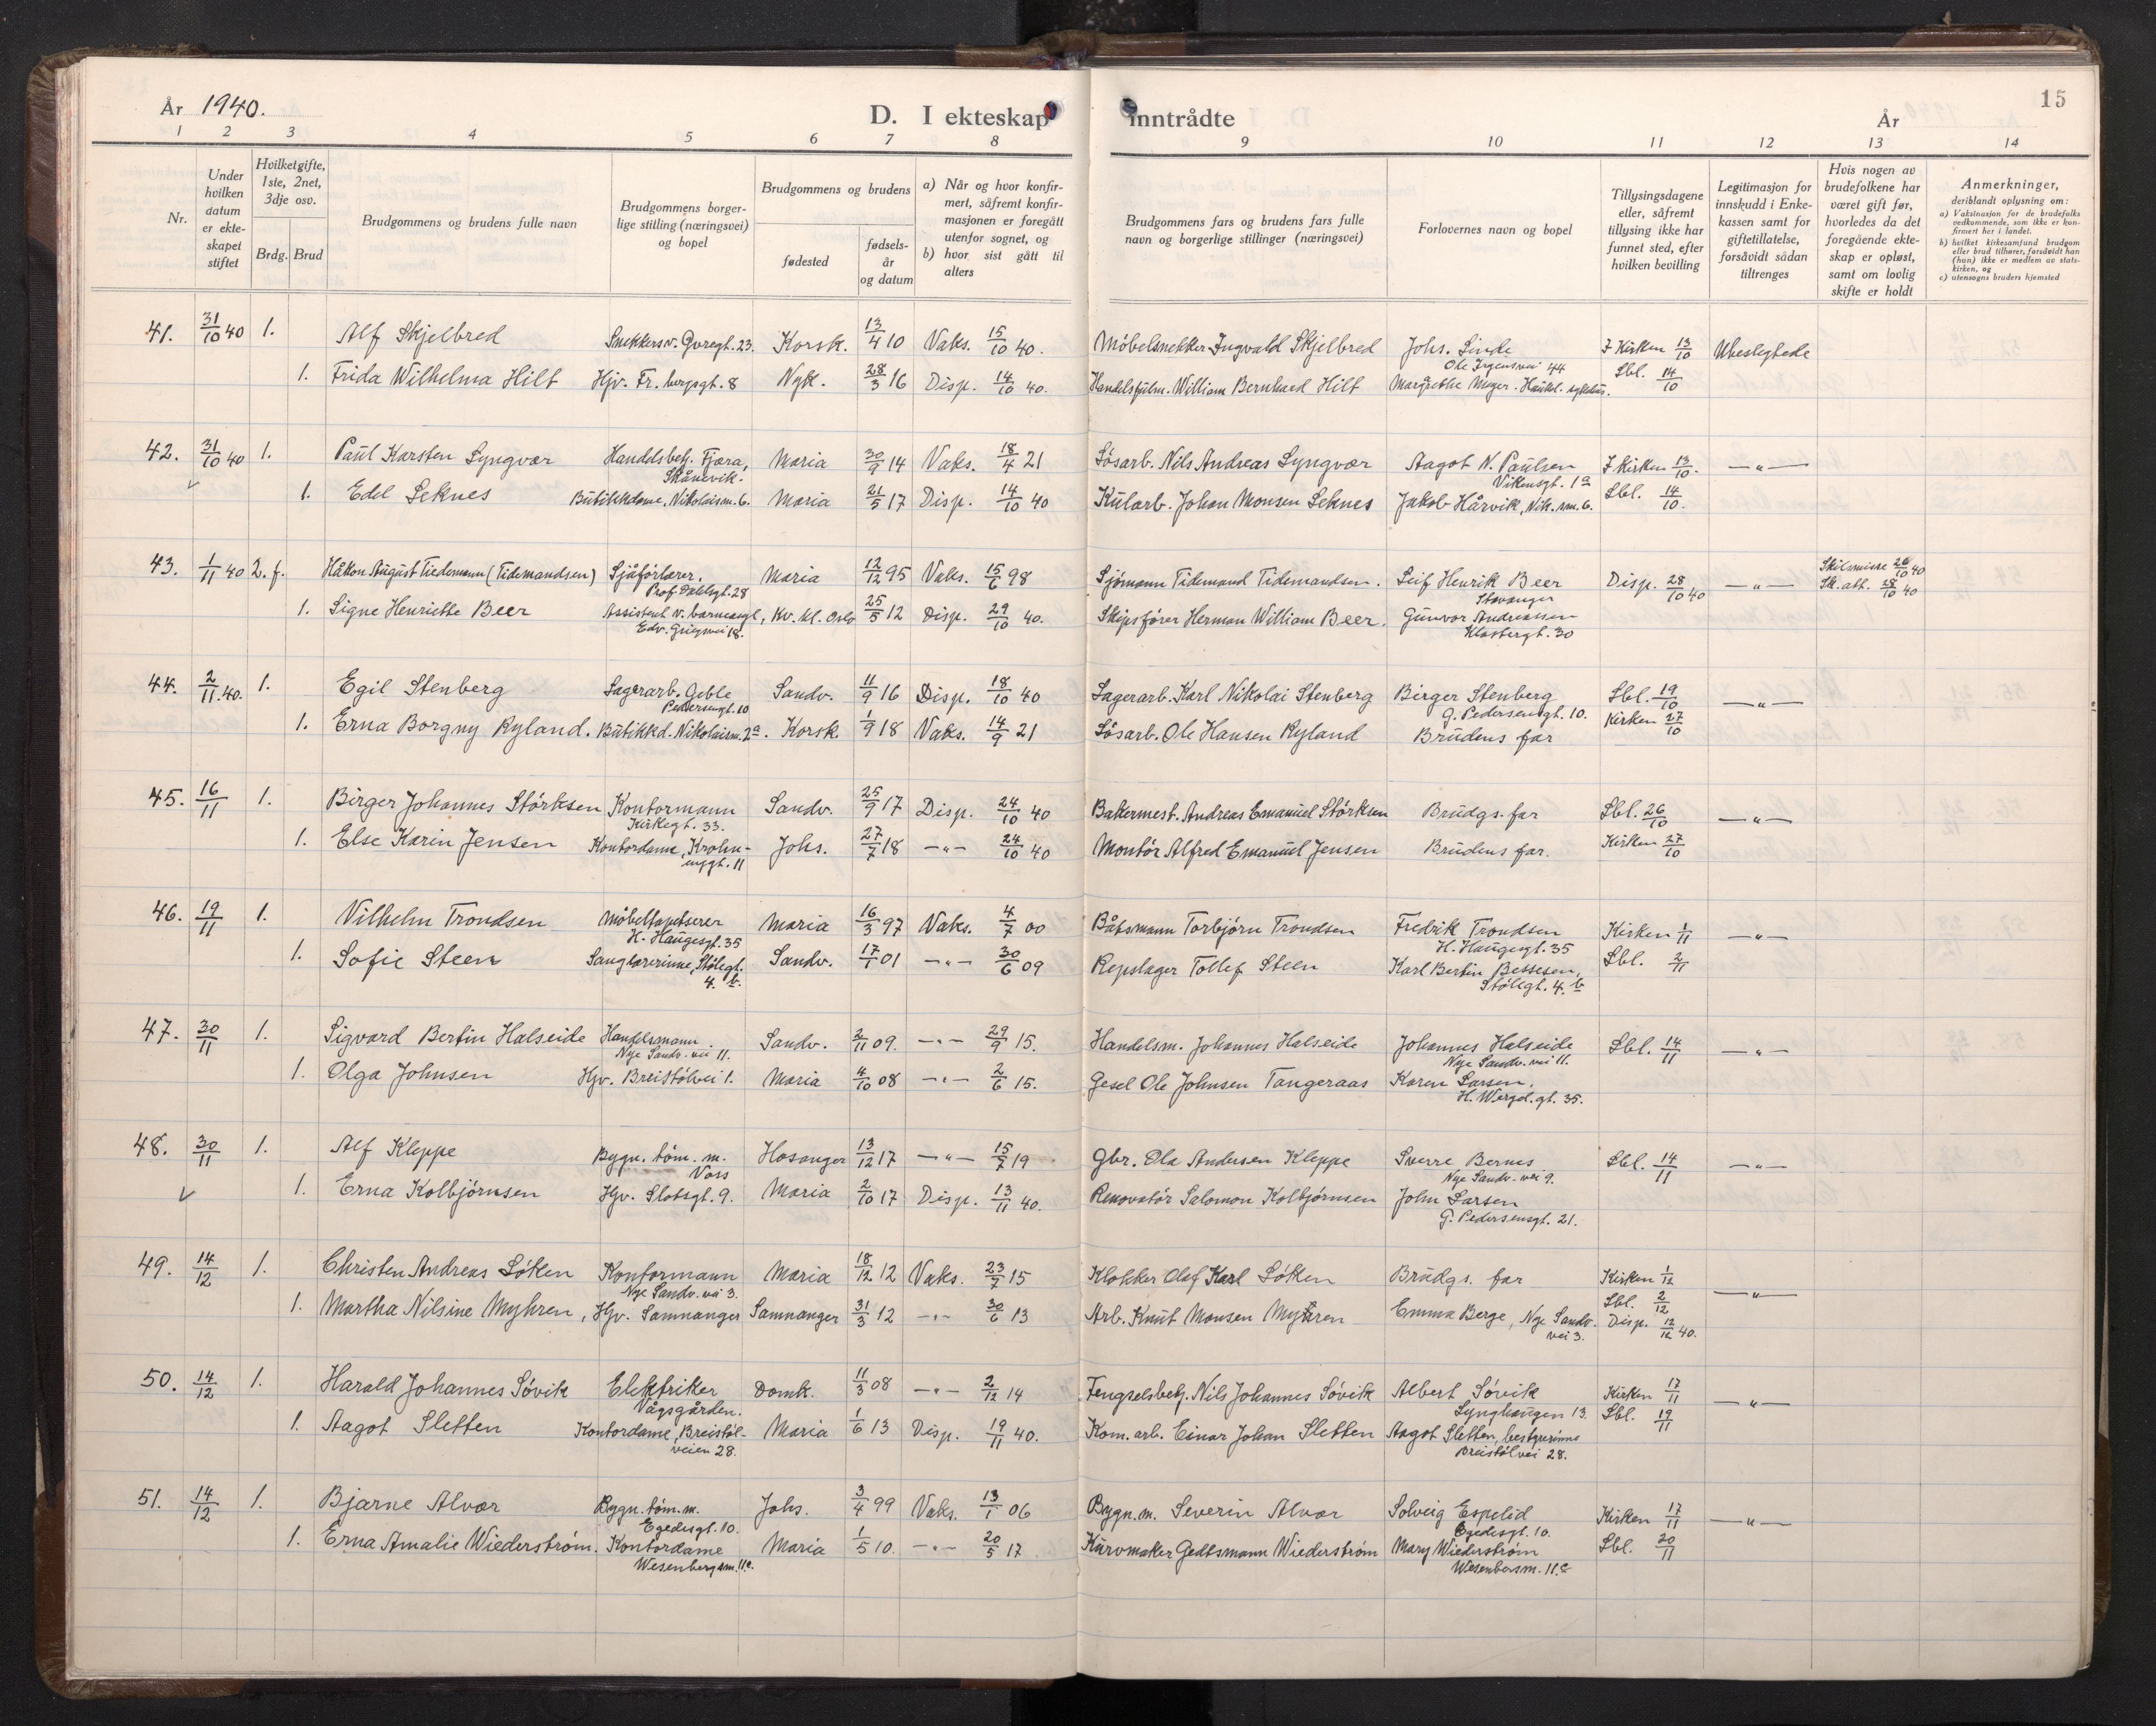 År 1940.
D. I ekteskap inntrådte
År
15
1 2 3 4 5 6 7 8 9 10 11 12 13 14
Nr.
Under hvilken datum er ekteskapet stiftet
Hvilket gifte, 1ste, 2net, 3dje osv.
Brdg. Brud
Brudgommens og brudens fulle navn
Brudgommens borgerlige stilling (næringsvei) og bopel
Brudgommens og brudens
fødested
fødselsår og datum
a) Når og hvor konfirmert, såfremt konfirmasjonen er foregått utenfor sognet, og
b) hvor sist gått til alters
Brudgommens fars og brudens fars fulle navn og borgerlige stillinger (næringsvei)
Forlovernes navn og bopel
Tillysingsdagene eller, såfremt tillysing ikke har funnet sted, efter hvilken bevilling
Legitimasjon for innskudd i Enkekassen samt for giftetillatelse, forsåvidt sådan tiltrenges
Hvis nogen av brudefolkene har været gift før, hvorledes da det foregående ekteskap er opløst, samt om lovlig skifte er holdt
Anmerkninger, deriblandt oplysning om:
a) Vaksinasjon for de brudefolks vedkommende, som ikke er konfirmert her i landet.
b) hvilket kirkesamfund brudgom eller brud tilhører, forsåvidt han (hun) ikke er medlem av statskirken, og
c) utensogns bruders hjemsted
41. 31/10 40 1. Alf Skjelbred Snekkersv. Øvregt. 23. Korsk. 13/4 10 Vaks. 15/10 40. Møbelsnekker Ingvald Skjelbred Johs. Linde I Kirken 13/10 Ubeslegtede
Ole Irgensvei 44
1. Frida Wilhelma Hilt Hjv. Fr. bergsgt. 8 Nyk. 28/3 16 Disp. 14/10 40. Handelsfulm. William Bernhard Hilt Margrethe Meyer. Haukl. sykehus. Lbl. 14/10
42. 31/10 40 1. Paul Karsten Lyngvær Handelsbetj. Fjæra, Maria 30/9 14 Vaks. 18/4 21 Løsarb. Nils Andreas Lyngvær Aagot N. Paulsen I Kirken 13/10. — " —
Skånevik. Vikensgt. 1a
1. Edel Seknes Butikkdame, Nikolaism. 6. Maria 21/5 17 Disp. 14/10 40 Kularb. Johan Monsen Seknes Jakob Hårvik, Nik. sm. 6. Lbl. 14/10.
43. 1/11 40 2. f. Håkon August Tiedemann (Tidemandsen) Sjåførlærer. Maria 12/12 95 Vaks. 15/6 98 Sjømann Tidemand Tidemandsen. Leif Henrik Beer Disp. 28/10 40 — " — Skilsmisse 26/10 40
Prof. Dahlsgt. 28 Stavanger Sk. att. 28/10 40
1. Signe Henriette Beer Assistent v. barneasyl, Kv. kl. Oslo 25/5 12 Disp. 29/10 40. Skipsfører Herman William Beer. Gunvor Andreassen
Edv. Griegsvei 18. Klostergt. 30
44. 2/11 40. 1. Egil Stenberg Lagerarb. Geble Sandv. 11/9 16 Disp. 18/10 40 Lagerarb. Karl Nikolai Stenberg Birger Stenberg Lbl. 19/10 — " —
Pedersensgt. 10 G. Pedersensgt. 10.
1. Erna Borgny Ryland. Butikkd. Nikolaism. 2a. Korsk. 1/9 18 Vaks. 14/9 21 Løsarb. Ole Hansen Ryland Brudens far Kirken 27/10
45. 16/11 1. Birger Johannes Størksen Kontormann Sandv. 25/9 17 Disp. 24/10 40 Bakermest. Andreas Emanuel Størksen Brudgs. far Lbl. 26/10 — " —
Kirkegt. 33.
1. Else Karin Jensen Kontordame, Krohnenggt. 11 Johs. 27/7 18 — " — 24/10 40 Montør Alfred Emanuel Jensen Brudens far. Kirken 27/10
46. 19/11 1. Vilhelm Trondsen Møbeltapetserer Maria 16/3 97 Vaks. 4/7 00 Båtsmann Torbjørn Trondsen Fredrik Trondsen Kirken 1/11 — " —
H. Haugesgt. 35 H. Haugesgt. 35
1. Sofie Steen Sanglærerinne, Stølegt. 4. b. Sandv. 17/1 01 — " — 30/6 09 Repslager Tollef Steen Karl Bertin Bessesen, Lbl. 2/11
Stølegt. 4. b
47. 30/11 1. Sigvard Bertin Halseide Handelsmann Sandv. 2/11 09. — " — 29/9 15. Handelsm. Johannes Halseide Johannes Halseide Lbl. 14/11 — " —
Nye Sandv. vei 11. Nye Sandv. vei 11.
1. Olga Johnsen Hjv. Breistølvei 1. Maria 4/10 08 — " — 2/6 15. Gesel Ole Johnsen Tangeraas Karen Larsen.
H. Wergel. gt. 35.
48. 30/11 1. Alf Kleppe Bygn. tøm. m. Hosanger 13/12 17 — " — 15/7 19 Gbr. Ola Andersen Kleppe Sverre Bernes Lbl. 14/11 — " —
Voss Nye Sandv. vei 9.
1. Erna Kolbjørnsen Hjv. Slotsgt. 9. Maria 2/10 17 Disp. 13/11 40. Renovatør Salomon Kolbjørnsen John Larsen
G. Pedersensgt. 21.
49. 14/12 1. Christen Andreas Løken Kontormann Maria 18/12 12 Vaks. 23/7 15 Klokker Olaf Karl Løken Brudgs. far Kirken 1/12
Nye Sandv. vei 3. Lbl. 2/12 — " —
1. Martha Nilsine Myhren, Hjv. Samnanger Samnanger 31/3 12 — " — 30/6 13 Arb. Knut Monsen Myhren Emma Berge, Nye Sandv. vei 3. Disp. 12/12 40.
50. 14/12 1. Harald Johannes Søvik Elektriker Domk. 11/3 08 — " — 2/12 14 Fengselsbetj. Nils Johannes Søvik Albert Søvik Kirken 17/11 — " —
Vågsgården. Lynghaugen 13.
1. Aagot Sletten Kontordame, Breistølveien 28. Maria 1/6 13 Disp. 19/11 40. Kom. arb. Einar Johan Sletten Aagot Sletten, bestyrerinne Lbl. 19/11
Breistølvei 28.
51. 14/12 1. Bjarne Alvær Bygn. tøm. m. Johs. 3/4 99 Vaks. 13/1 06 Bygn. m. Severin Alvær Solveig Espelid Kirken 17/11 — " —
Egedesgt. 10. Egedesgt. 10.
1. Erna Amalie Wiederstrøm. Kontordame Maria 1/5 10. — " — 20/5 17 Kurvmaker Gedtsmann Wiederstrøm Mary Wiederstrøm Lbl. 20/11
Wesenbergsm. 11c. Wesenbersm. 11.c